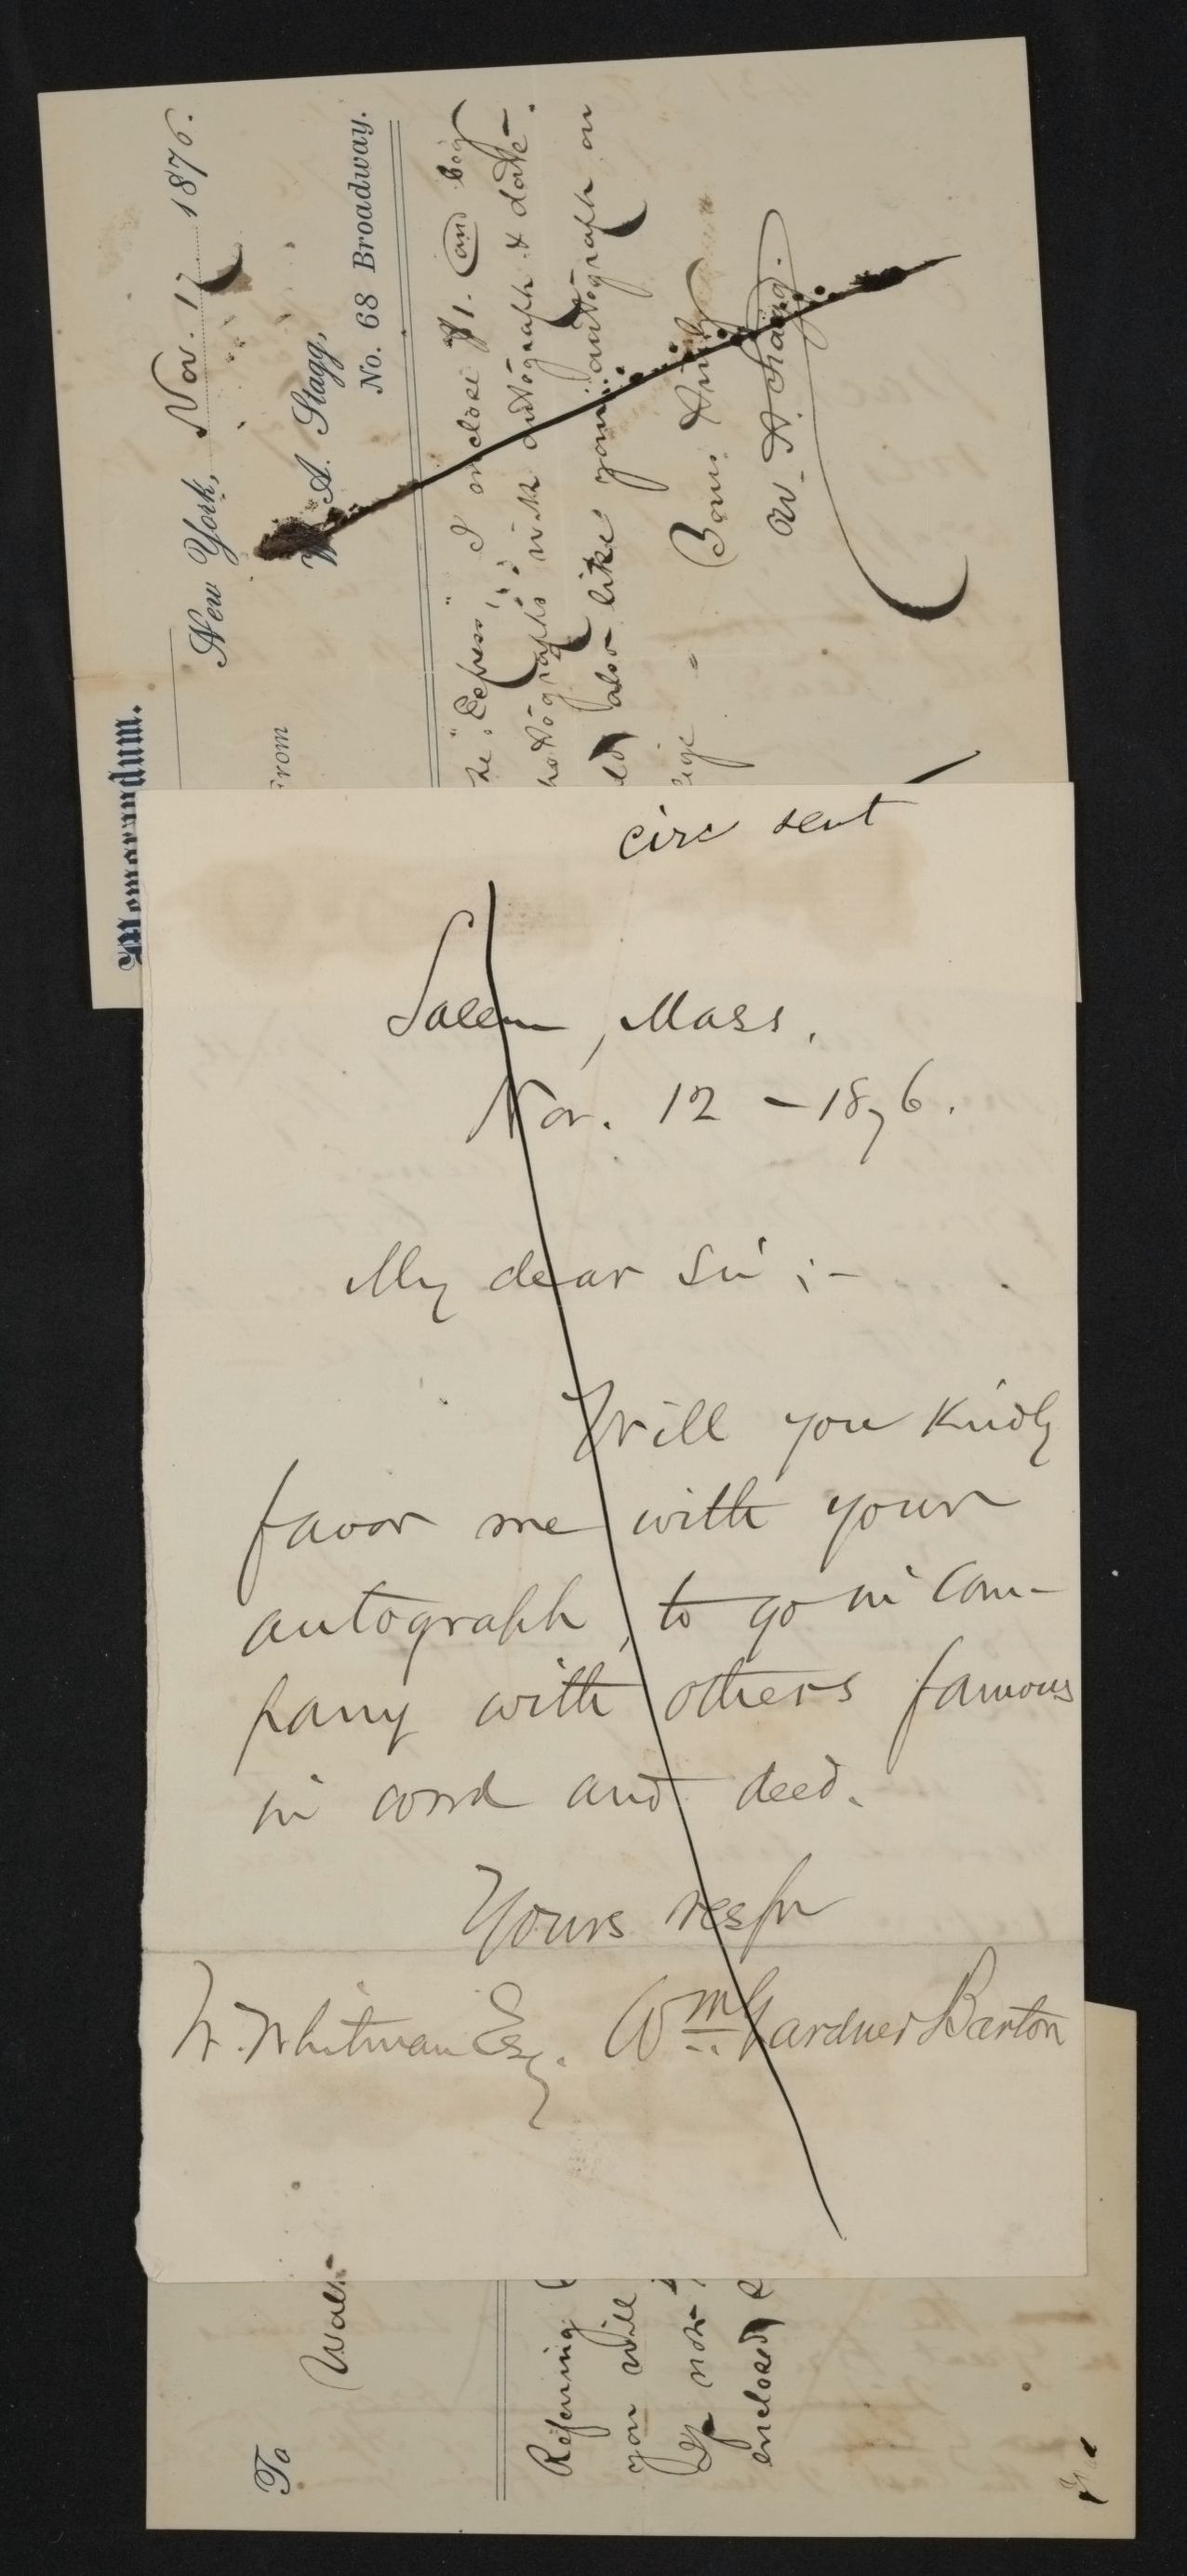 Memorandum.
New York, Nov. 17 1876.
From
W. A. Stagg,
No. 68 Broadway.
To
Walt
Referring
"Express" I enclose $1. and beg
you will
with autograph & date.
If not
also like your autograph on
enclosed
Yours truly
W. A. Stagg.
circ sent
Salem, Mass.
Nov. 12 - 1876.
My dear Sir ;-
Will you kindly
favor me with your
autograph, to go in com-
pany with others famous
in word and deed.
Yours resp
W. Whitman Esq. Wm Gardner Barton